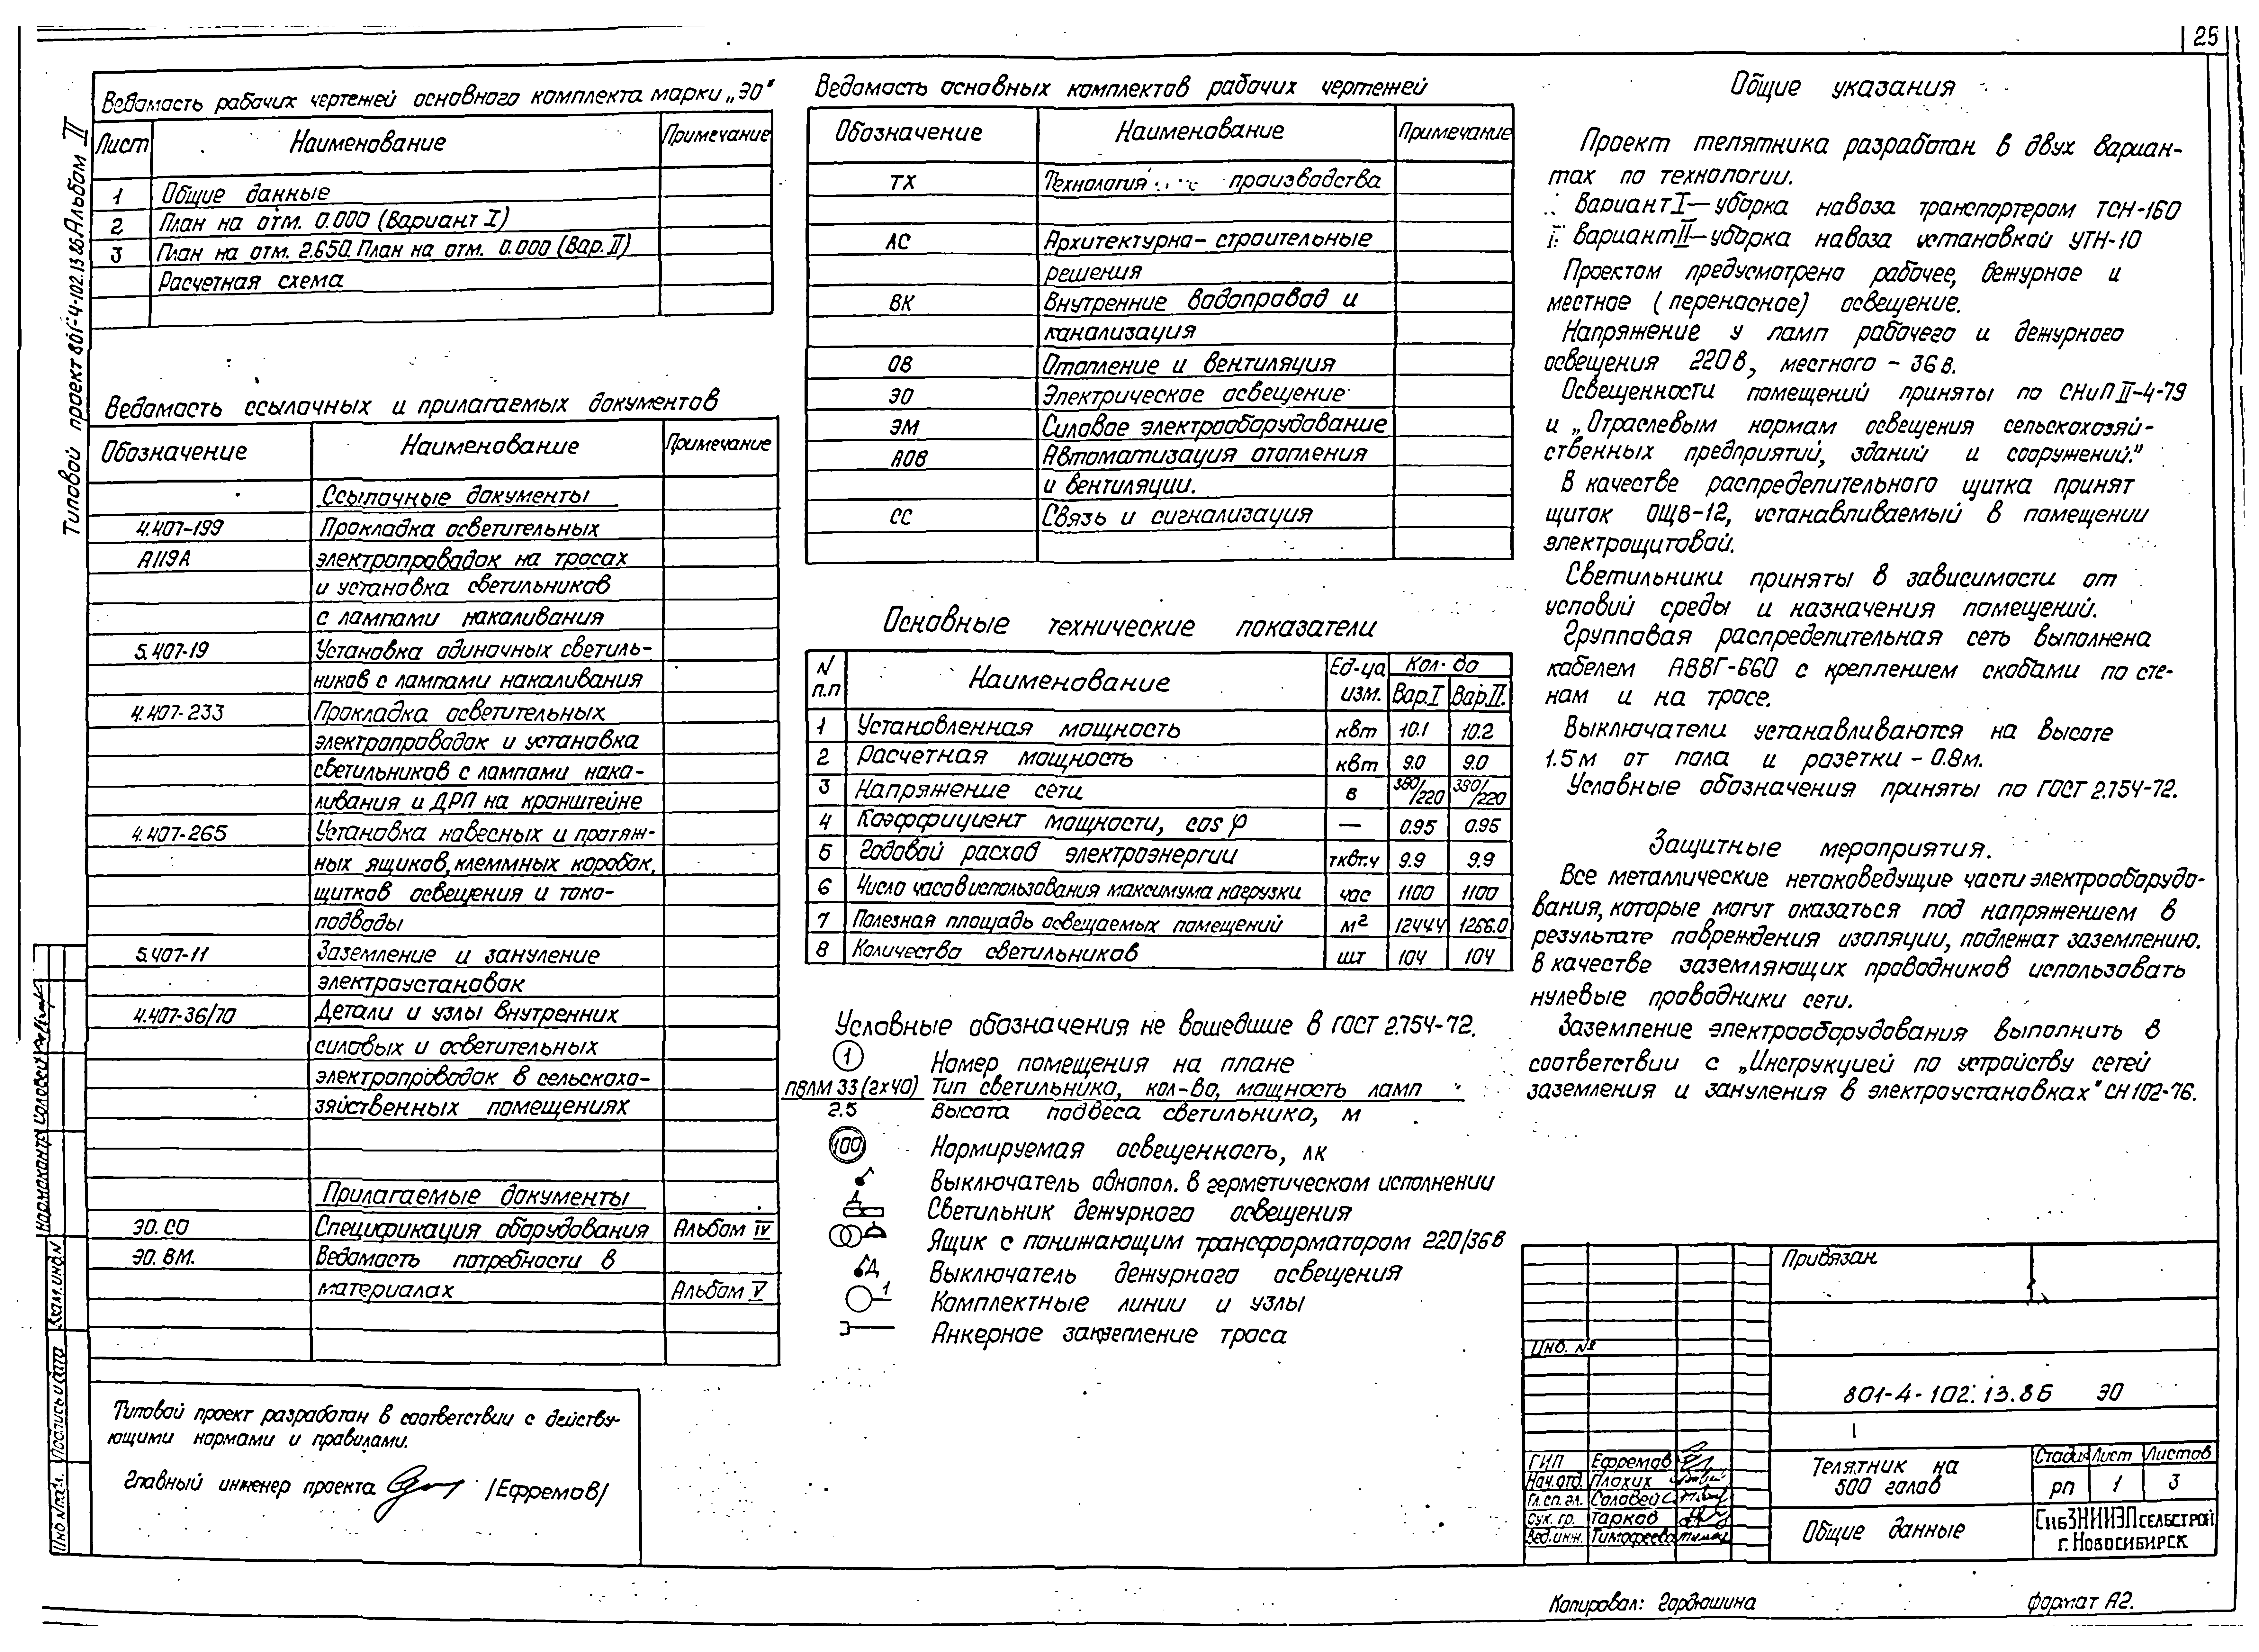 25
Типовой проект 801-4-102.13.86 Альбом II
Ведомость рабочих чертежей основного комплекта марки „ЭО"
Лист Наименование Примечание
1 Общие данные
2 План на отм. 0.000 (Вариант I)
3 План на отм. 2.650. План на отм. 0.000 (Вар. II)
Расчетная схема
Ведомость ссылочных и прилагаемых документов
Обозначение Наименование Примечание
Ссылочные документы
4.407-199 Прокладка осветительных
А119А электропроводок на тросах
и установка светильников
с лампами накаливания
5.407-19 Установка одиночных светиль-
ников с лампами накаливания
4.407-233 Прокладка осветительных
электропроводок и установка
светильников с лампами нака-
ливания и ДРЛ на кронштейне
4.407-265 Установка навесных и протяж-
ных ящиков, клеммных коробок,
щитков освещения и токо-
подводы
5.407-11 Заземление и зануление
электроустановок
4.407-36/70 Детали и узлы внутренних
силовых и осветительных
электропроводок в сельскохо-
зяйственных помещениях
Прилагаемые документы
ЭО. СО Спецификация оборудования Альбом IV
ЭО. ВМ. Ведомость потребности в
материалах Альбом V
Типовой проект разработан в соответствии с действу-
ющими нормами и правилами.
Главный инженер проекта /Ефремов/
Ведомость основных комплектов рабочих чертежей
Обозначение Наименование Примечание
ТХ Технология производства
АС Архитектурно-строительные
решения
ВК Внутренние водопровод и
канализация
ОВ Отопление и вентиляция
ЭО Электрическое освещение
ЭМ Силовое электрооборудование
АОВ Автоматизация отопления
и вентиляции.
СС Связь и сигнализация
Основные технические показатели
N п.п Наименование Ед-ца изм. Кол-во
Вар. I Вар. II.
1 Установленная мощность квт 10.1 10.2
2 Расчетная мощность квт 9.0 9.0
3 Напряжение сети в 380/220 380/220
4 Коэффициент мощности, cos φ — 0.95 0.95
5 Годовой расход электроэнергии тквт.ч 9.9 9.9
6 Число часов использования максимума нагрузки час 1100 1100
7 Полезная площадь освещаемых помещений м² 1244.4 1256.0
8 Количество светильников шт 104 104
Условные обозначения не вошедшие в ГОСТ 2.754-72.
1 Номер помещения на плане
ПВЛМ 33 (2х40) Тип светильника, кол-во, мощность ламп
2.5 Высота подвеса светильника, м
100 Нормируемая освещенность, лк
Выключатель однопол. в герметическом исполнении
Светильник дежурного освещения
Ящик с понижающим трансформатором 220/36в
Д Выключатель дежурного освещения
1 Комплектные линии и узлы
Анкерное закрепление троса
Общие указания
Проект телятника разработан в двух вариан-
тах по технологии.
Вариант I — уборка навоза транспортером ТСН-160
Вариант II — уборка навоза установкой УТН-10
Проектом предусмотрено рабочее, дежурное и
местное (переносное) освещение.
Напряжение у ламп рабочего и дежурного
освещения 220 в, местного - 36 в.
Освещенности помещений приняты по СНиП II-4-79
и „Отраслевым нормам освещения сельскохозяй-
ственных предприятий, зданий и сооружений."
В качестве распределительного щитка принят
щиток ОЩВ-12, устанавливаемый в помещении
электрощитовой.
Светильники приняты в зависимости от
условий среды и назначения помещений.
Групповая распределительная сеть выполнена
кабелем АВВГ-660 с креплением скобами по сте-
нам и на тросе.
Выключатели устанавливаются на высоте
1.5м от пола и розетки - 0.8м.
Условные обозначения приняты по ГОСТ 2.754-72.
Защитные мероприятия.
Все металлические нетоковедущие части электрооборудо-
вания, которые могут оказаться под напряжением в
результате повреждения изоляции, подлежат заземлению.
В качестве заземляющих проводников использовать
нулевые проводники сети.
Заземление электрооборудования выполнить в
соответствии с „Инструкцией по устройству сетей
заземления и зануления в электроустановках" СН 102-76.
Привязан
Инв. №
801-4-102.13.86 ЭО
ГИП Ефремов
Нач.отд. Плохих
Гл.сп.эл. Соловей
Рук. гр. Тарков
Вед.инж. Тимофеева
Телятник на
500 голов
Стадия Лист Листов
рп 1 3
Общие данные
СибЗНИИЭПсельстрой
г. Новосибирск
Копировал: Гордюшина
Формат А2.
Нормоконтр Соловей
Взам.инв.N
Подпись и дата
Инв N подл.